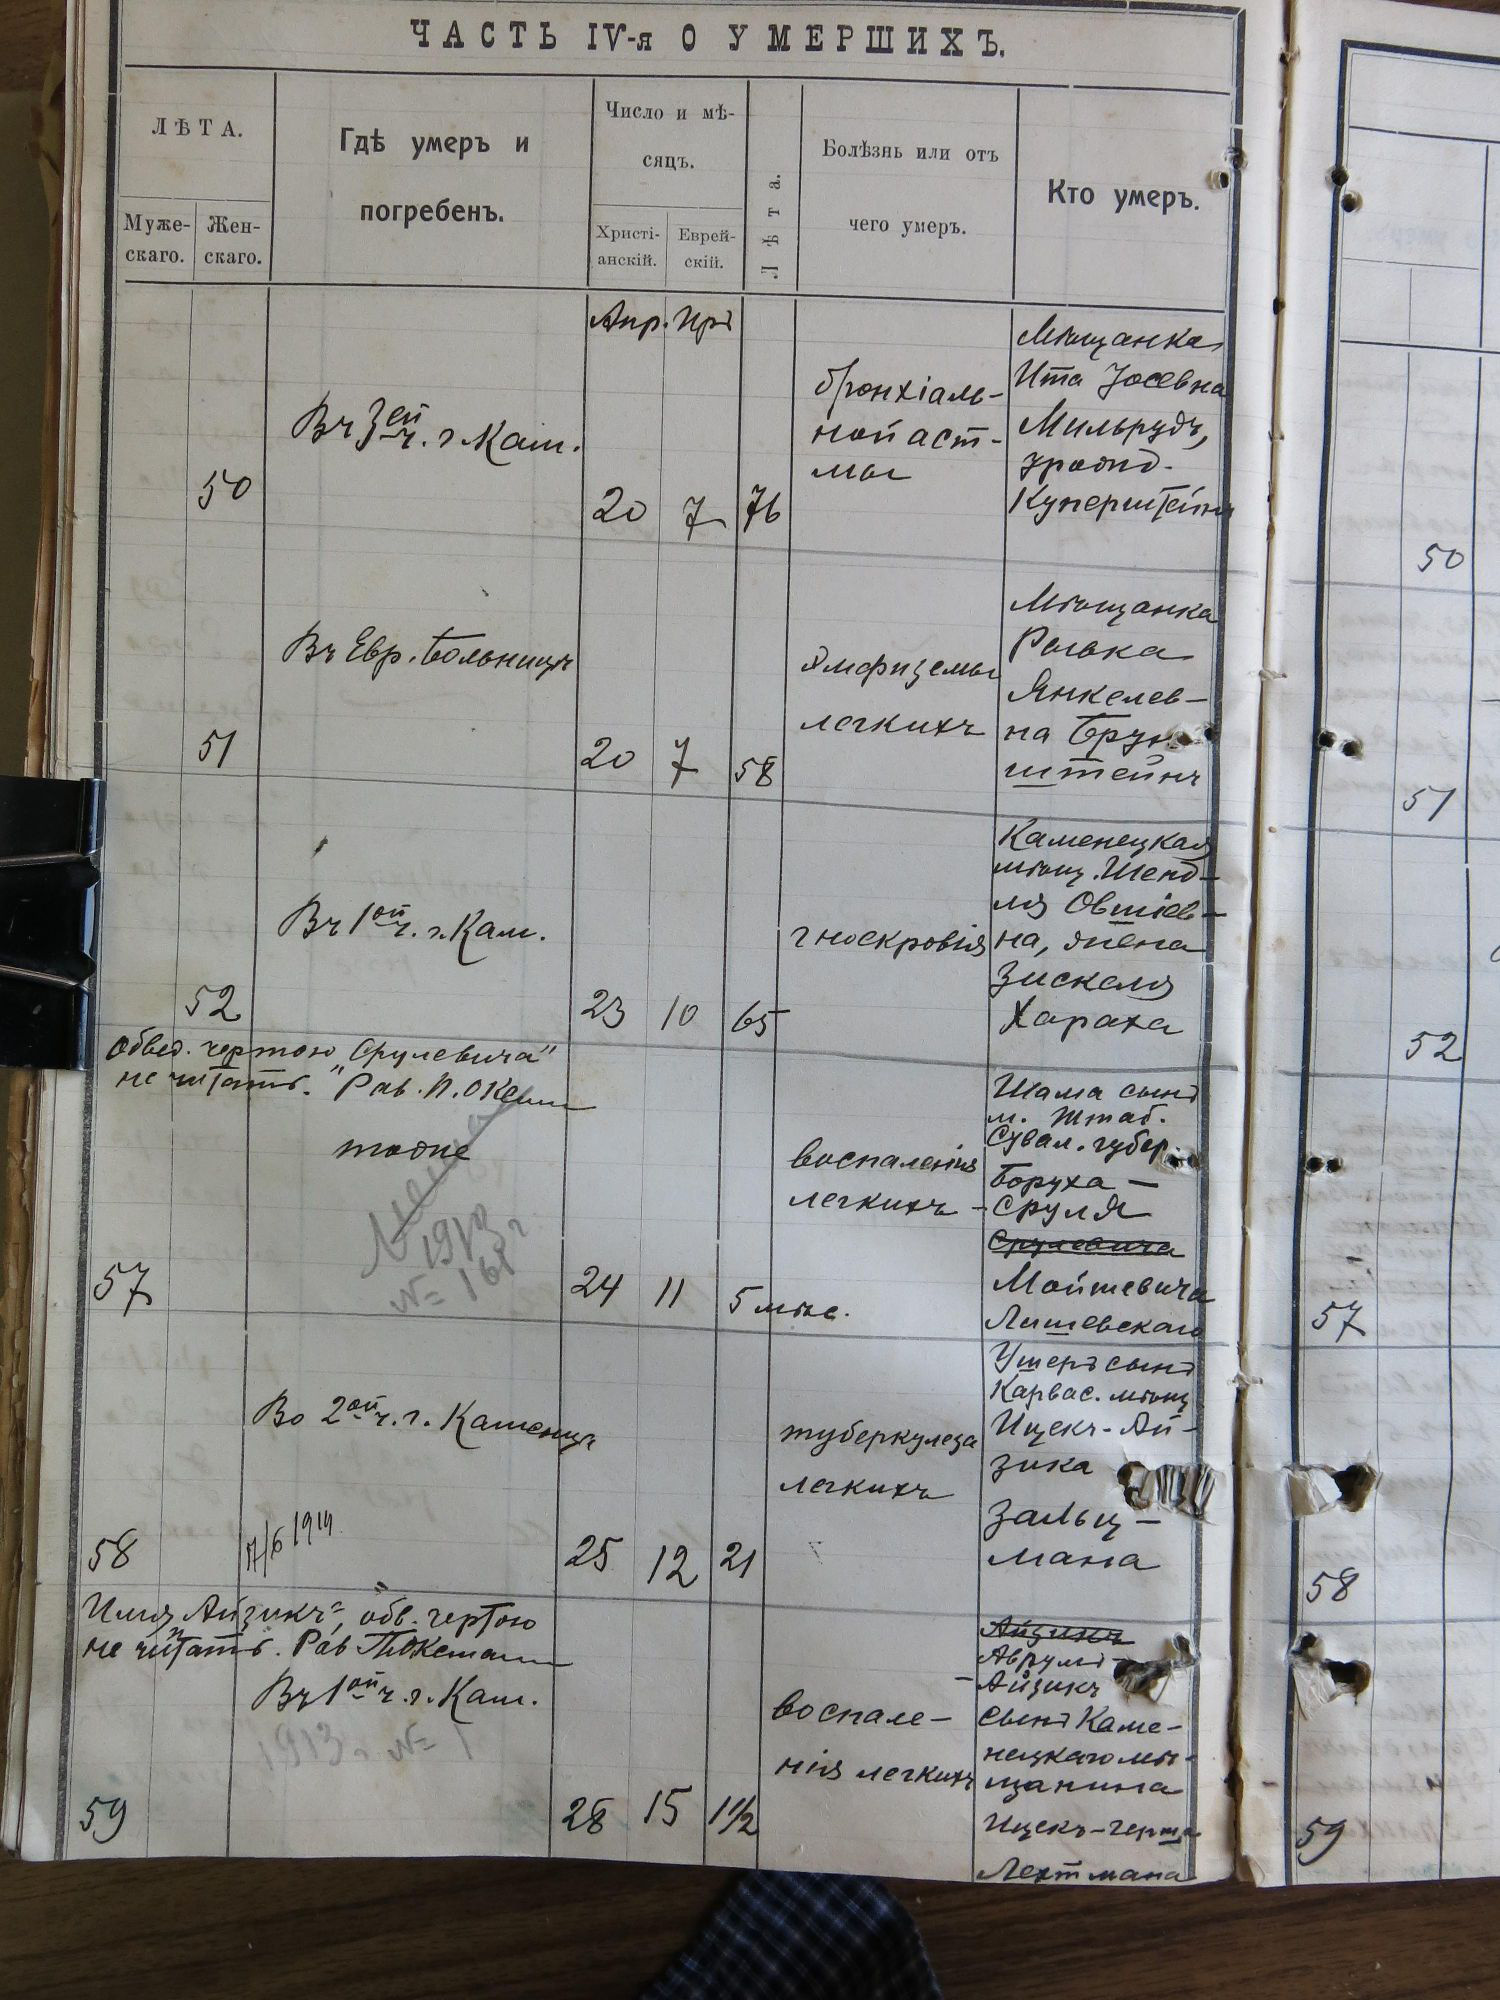 ЧАСТЬ IV-я О УМЕРШИХЪ.
ЛѢТА.
Муже-
скаго.
Жен-
скаго.
Гдѣ умеръ и
погребенъ.
Число и мѣ-
сяцъ.
Христі-
анскій.
Еврей-
скій.
Лѣта.
Болѣзнь или отъ
чего умеръ.
Кто умеръ.
Апр. Иръ
50
Въ 3ей ч. г. Кам.
20
7
76
бронхіаль-
ной аст-
мы
Мѣщанка
Ита Іосевна
Мильрудъ,
урожд.
Куперштейнъ
50
51
Въ Евр. больницѣ
20
7
58
Эмфиземы
легкихъ
Мѣщанка
Роська
Янкелев-
на Брун
штейнъ
51
52
Въ 1ой ч. г. Кам.
23
10
65
гноекровія
Каменецкая
мѣщ. Шенд-
ля Овшіев-
на, жена
Зискеля
Хараха
52
Обвед. чертою "Срулевича"
не читать. Рав.
57
тоже
1913 г
№
24
11
5 мѣс.
воспаленія
легкихъ
Шама сынъ
м. Штаб.
Сувал. губер.
Боруха -
Сруля
Срулевича
Мойшевича
Лишевскаго
57
58
Во 2ой ч. г. Каменца
1914
25
12
21
туберкулеза
легкихъ
Ушеръ сынъ
Карвас. мѣщ
Ицекъ-Ай-
зика
Зальц-
мана
58
Имя "Айзикъ", обв. чертою
не читать. Рав
59
Въ 1ой ч. г. Кам.
1913 г. № 1
28
15
1 1/2
воспале-
нія легкихъ
Айзикъ
Аврумъ-
Айзикъ
сынъ Каме-
нецкаго мѣ-
щанина
Ицекъ-Герша
Лехтмана
59